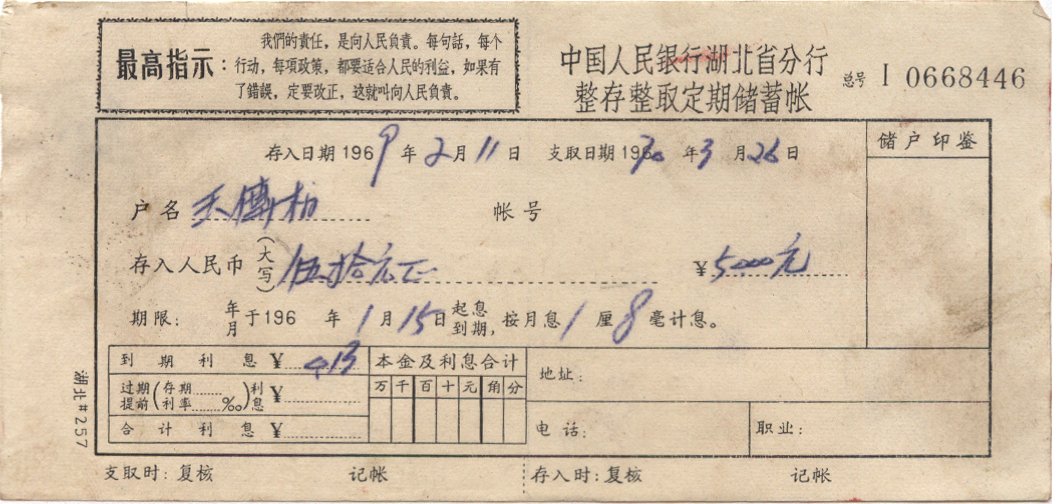 最高指示:
我們的責任，是向人民負責。每句話，每个
行动，每項政策，都要适合人民的利益，如果有
了錯誤，定要改正，这就叫向人民負責。
中国人民银行湖北省分行
整存整取定期储蓄帐
总号 I 0668446
存入日期 1969 年 2 月 11 日 支取日期 196 70 年 3 月 26 日
储户印鉴
户名 帐号
存入人民币(大写) 伍拾元正 ¥ 5000 元
期限: 年月 于196 年 1 月 15 日 起息到期, 按月息 1 厘 8 毫计息。
到期利息 ¥
本金及利息合计
万 千 百 十 元 角 分
过期提前(存期......利率......‰)利息 ¥
合计利息 ¥
地址:
电话:
职业:
湖北#257
支取时: 复核 记帐 存入时: 复核 记帐